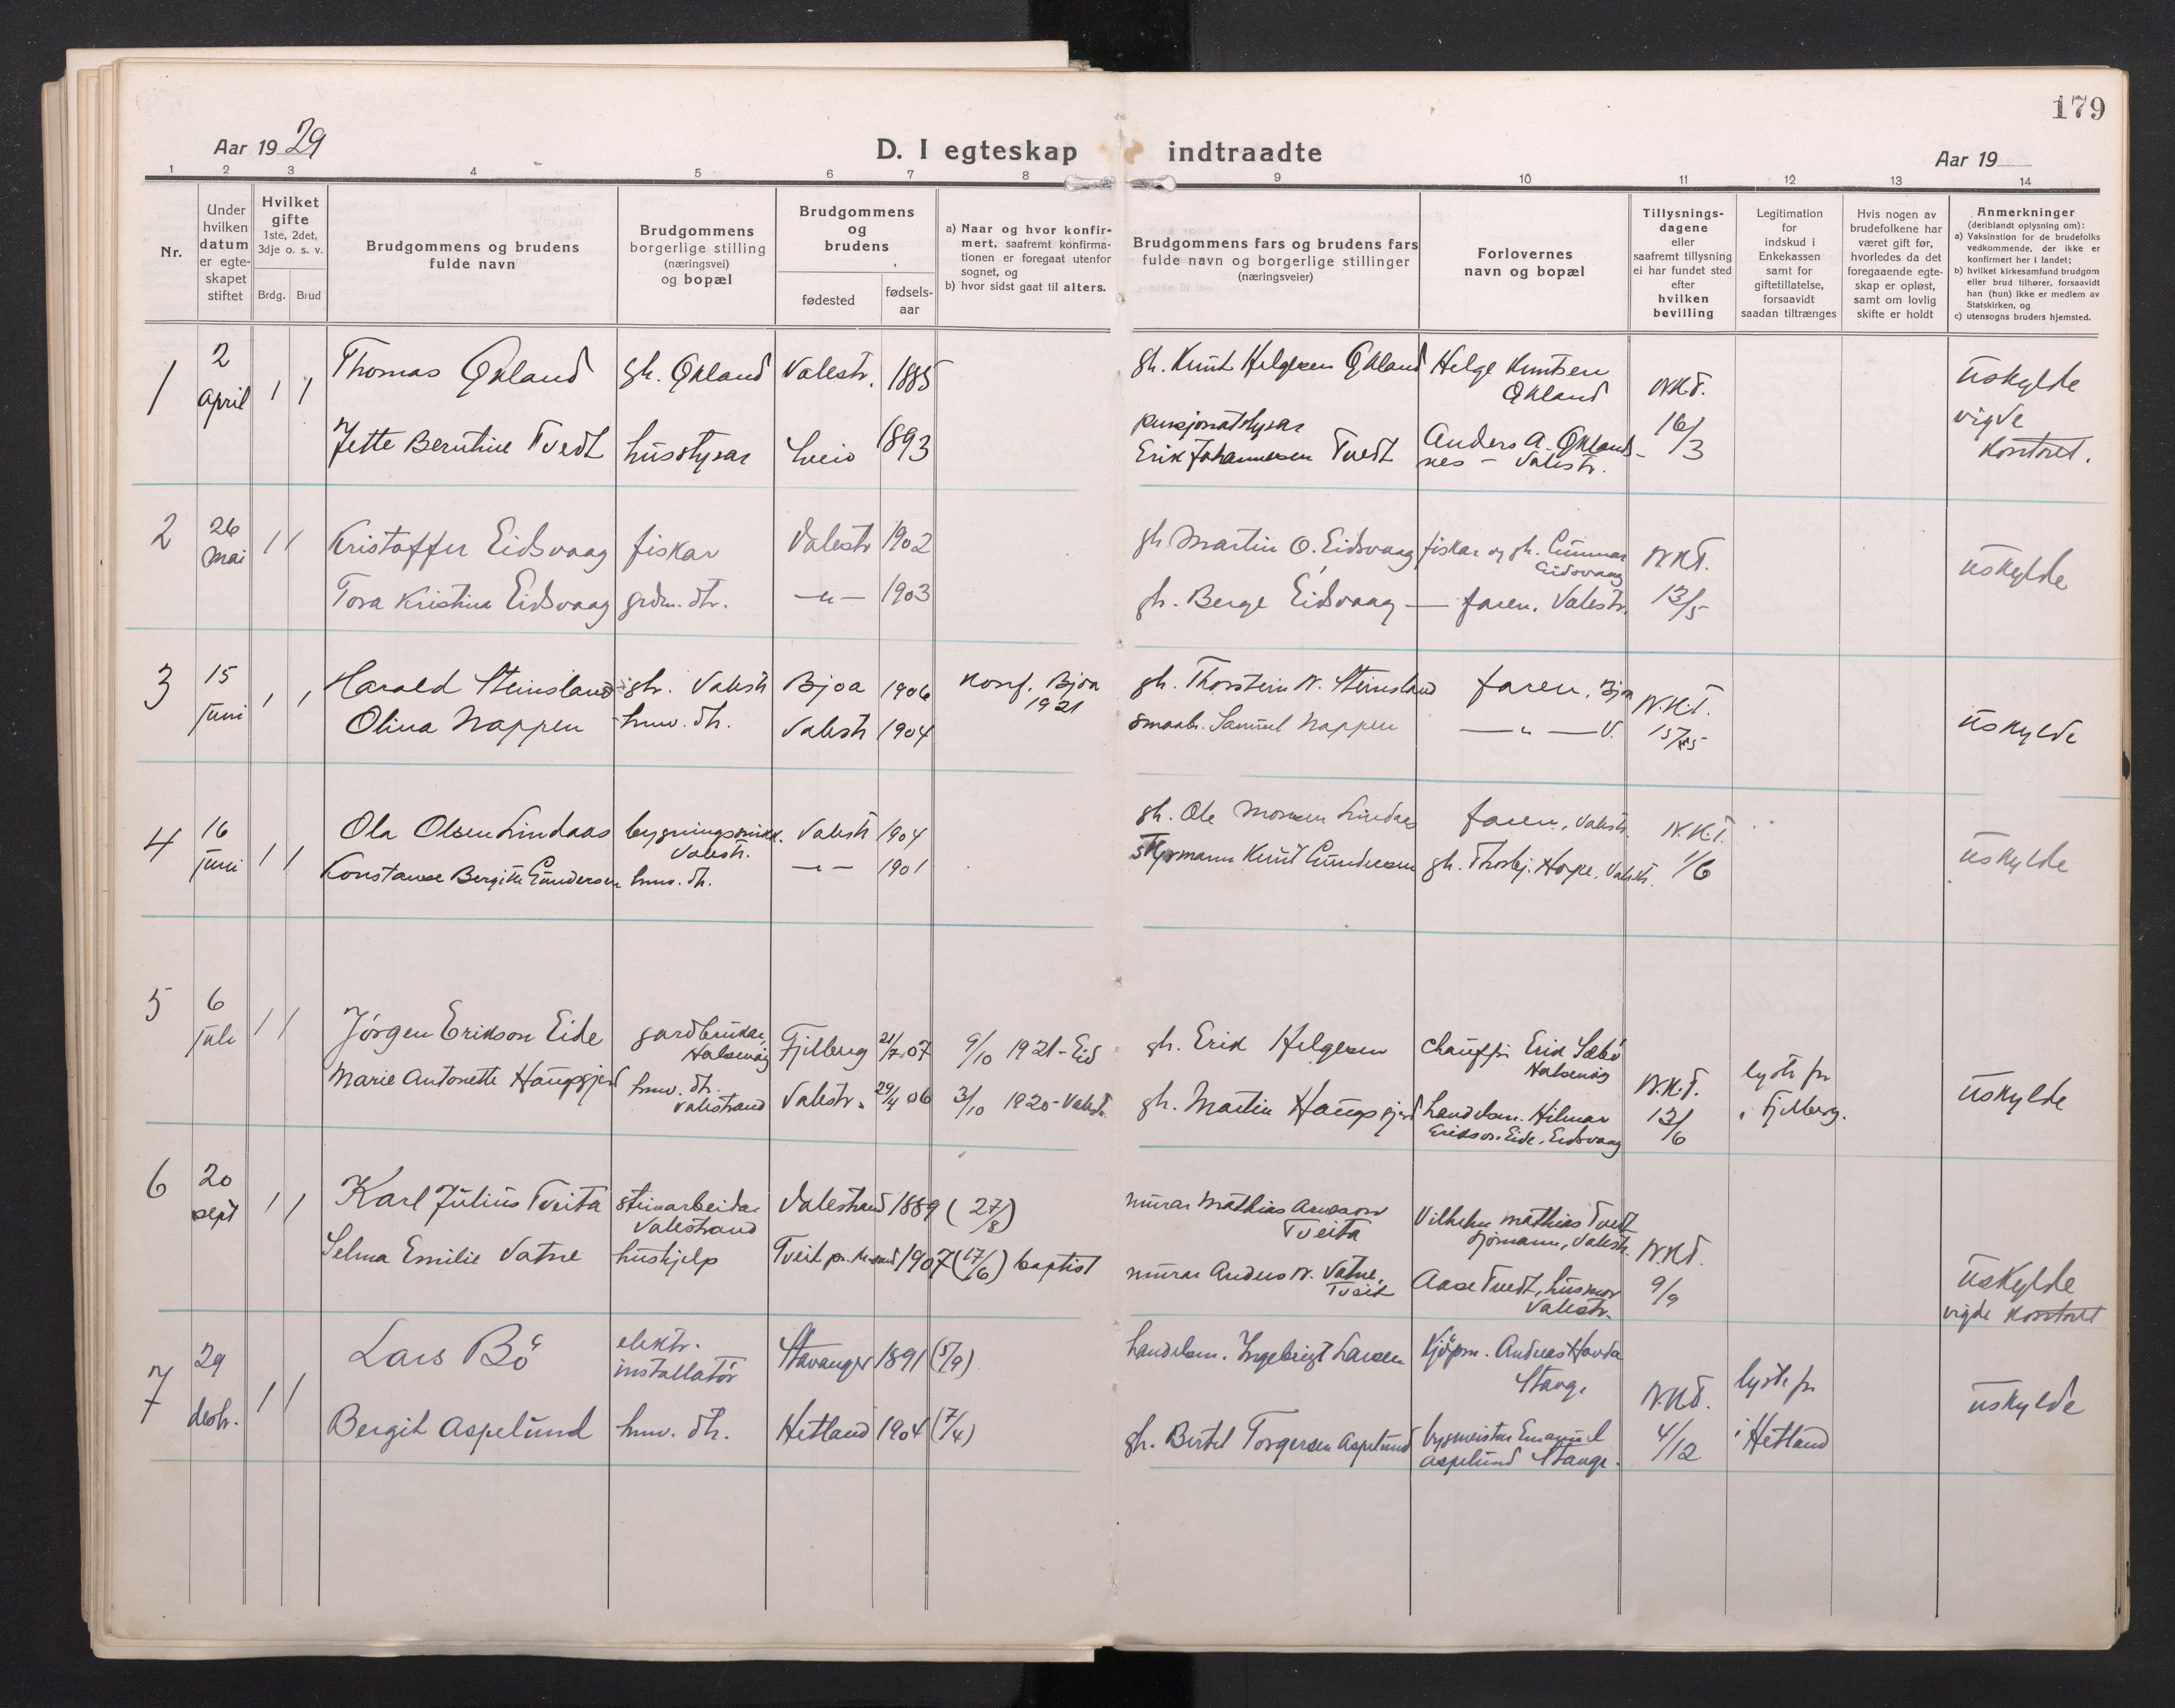 179
Aar 1929
D. I egteskap indtraadte
Aar 19
1 2 3 4 5 6 7 8 9 10 11 12 13 14
Nr.
Under hvilken datum er egte-skapet stiftet
Hvilket gifte 1ste, 2det, 3dje o. s. v.
Brdg. Brud
Brudgommens og brudens fulde navn
Brudgommens borgerlige stilling (næringsvei) og bopæl
Brudgommens og brudens
fødested
fødsels-aar
a) Naar og hvor konfir-mert, saafremt konfirma-tionen er foregaat utenfor sognet, og
b) hvor sidst gaat til alters.
Brudgommens fars og brudens fars fulde navn og borgerlige stillinger (næringsveier)
Forlovernes navn og bopæl
Tillysnings-dagene eller saafremt tillysning ei har fundet sted efter hvilken bevilling
Legitimation for indskud i Enkekassen samt for giftetillatelse, forsaavidt saadan tiltrænges
Hvis nogen av brudefolkene har været gift før, hvorledes da det foregaaende egte-skap er opløst, samt om lovlig skifte er holdt
Anmerkninger (deriblandt oplysning om):
a) Vaksination for de brudefolks vedkommende, der ikke er konfirmert her i landet;
b) hvilket kirkesamfund brudgom eller brud tilhører, forsaavidt han (hun) ikke er medlem av Statskirken, og
c) utensogns bruders hjemsted.
1 2 april 1 1 Thomas Økland gh. Økland Valestr. 1885 gh. Knut Helgesen Økland Helge Knutsen Økland N.K.T. uskylde
Jette Berntine Tvedt husstyrar Sveio 1893 pensjonatstyrar Erik Johannesen Tvedt Anders A. Øklands-nes - Valestr. 16/3 vigde kontoret.
2 26 mai 1 1 Kristoffer Eidsvaag fiskar Valestr 1902 gh. Martin O. Eidsvaag fiskar og gh. Gunnar Eidsvaag N.K.T. uskylde
Tora Kristina Eidsvaag grdm. dtr. — " — 1903 gh. Berge Eidsvaag — faren, Valestr. 13/5
3 15 juni 1 1 Harald Steinsland gh. Valestr Bjoa 1906 Konf. Bjoa 1921 gh. Thorstein N. Steinsland faren, Bjoa N.K.T.
Olina Nappen hmv. dtr. Valestr 1904 smaabr. Samuel Nappen — " — V. uskylde
4 16 juni 1 1 Ola Olsen Lindaas bygningssnikk. Valestr. Valestr 1904 gh. Ole Monsen Lindaas faren, Valestr. N.K.T.
Konstanse Bergitte Gundersen hmv. dtr. — " — 1901 styrmann Knut Gundersen gh. Thorbj. Hope, Valestr. 1/6 uskylde
5 6 juli 1 1 Jörgen Erikson Eide gardbrukar, Halsenöy Fjelberg 21/7 07 9/10 1921 - Eid gh. Erik Helgesen chauffør Erik Sæbö Halsenöy N.K.T. lyste fr i Fjelberg. uskylde
Marie Antonette Haugsgjerd hmv. dtr. Valestrand Valestr. 29/4 06 3/10 1920 - Valestr. gh. Martin Haugsgjerd handelsm. Hilmar Erikson Eide, Eidsvaag 13/6
6 20 sept 1 1 Karl Julius Tveita steinarbeidar Valestrand Valestrand 1889 (27/8) murar Mathias Aneson Tveita Vilhelm Mathias Tvedt sjømann, Valestr. N.K.T.
Selma Emilie Vatne hushjelp Tveit pr. Kr.sand 1907 (17/6) baptist murar Anders N. Vatne, Tveit Aase Tvedt, husmor Valestr. 9/9 uskylde vigde kontoret
7 29 desbr. 1 1 Lars Bö elektr. installatör Stavanger 1891 (5/9) handelsm. Ingebrigt Larsen Kjöpm. Andreas Havda Stavgr N.K.T. lyste fr i Hetland uskylde
Bergit Aspelund hmv. dtr. Hetland 1904 (7/4) gh. Bertel Torgersen Aspelund bygmeistar Emanuel Aspelund Stavgr. 4/12